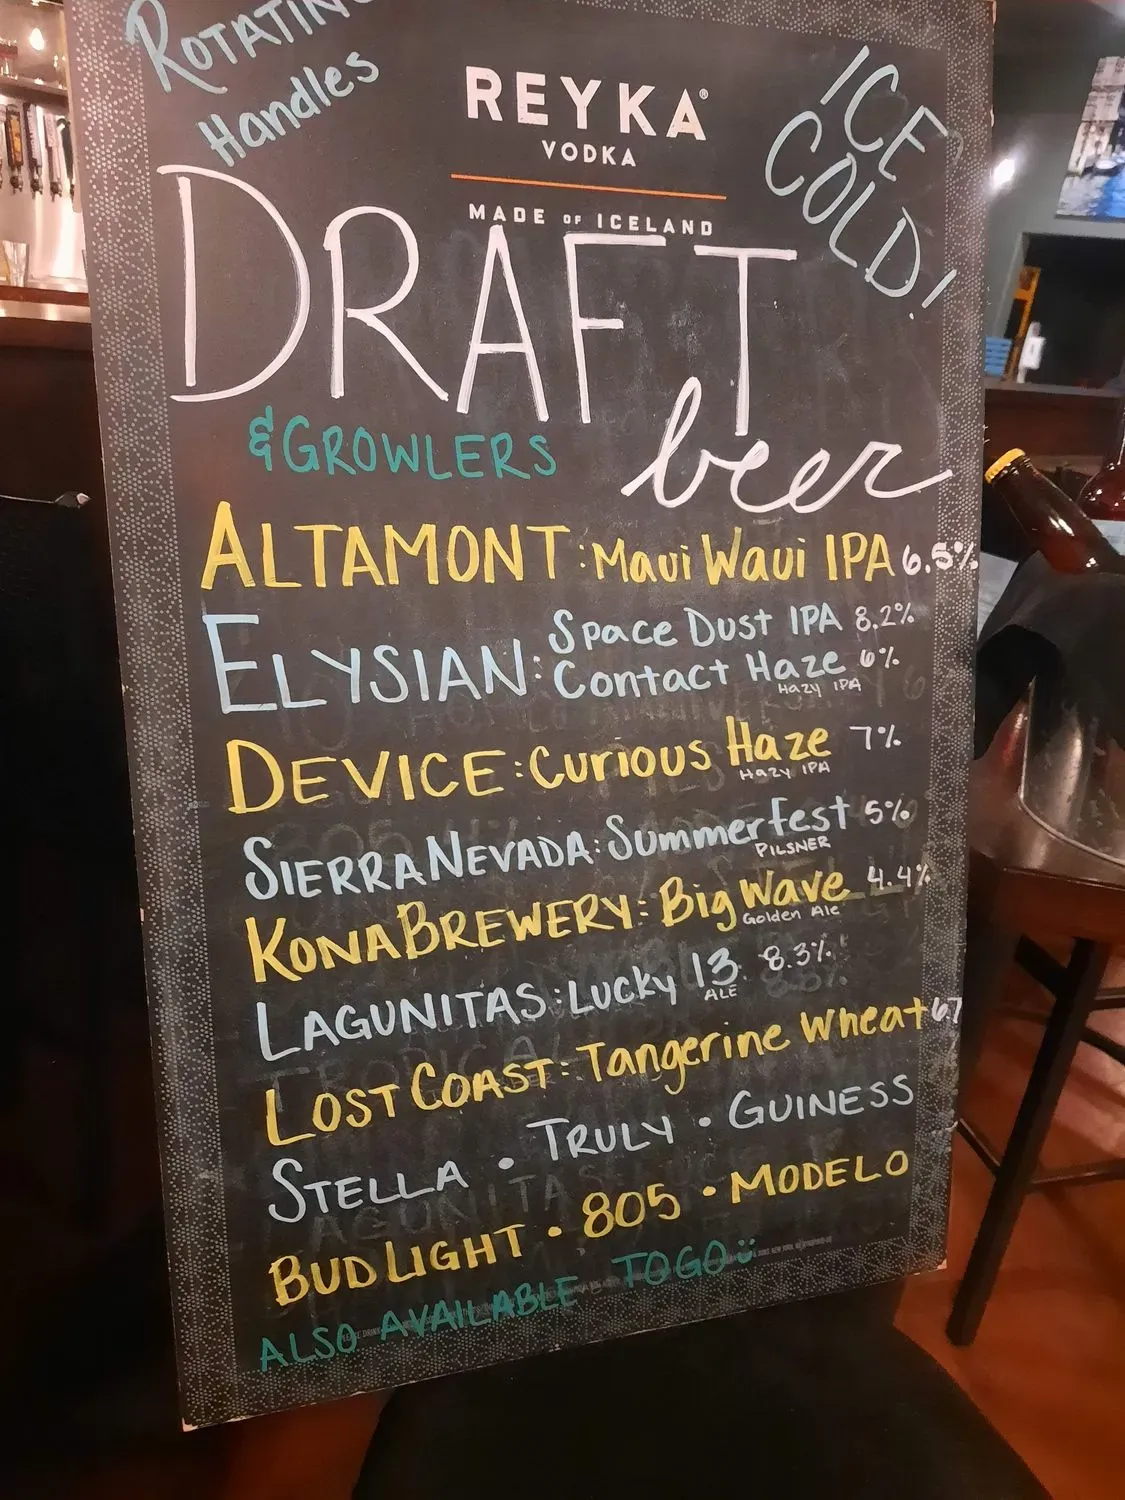 ROTATING
Handles
ICE
COLD!
REYKA®
VODKA
MADE OF ICELAND
DRAFT
beer
& GROWLERS
ALTAMONT: Maui Waui IPA 6.5%
ELYSIAN: Space Dust IPA 8.2%
Contact Haze 6%
Hazy IPA
DEVICE: Curious Haze 7%
Hazy IPA
SIERRA NEVADA: Summerfest 5%
PILSNER
KONA BREWERY: Big Wave 4.4%
Golden Ale
LAGUNITAS: Lucky 13 8.3%
ALE
LOST COAST: Tangerine Wheat
STELLA • TRULY • GUINESS
BUD LIGHT • 805 • MODELO
ALSO AVAILABLE TOGO